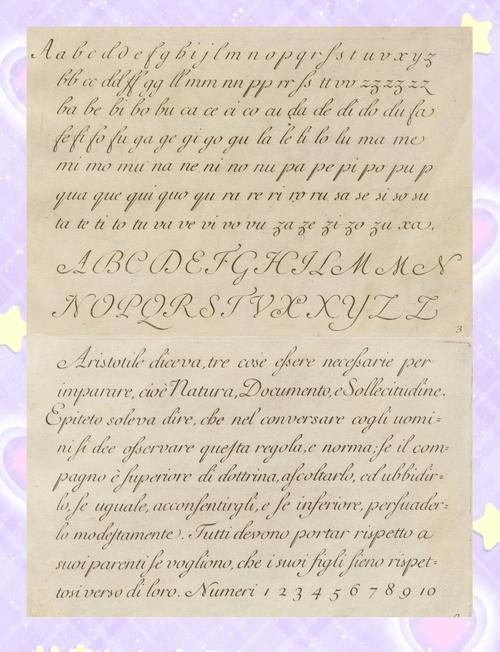 A a b c d d e f g h i j l m n o p q r ſ s t u v x y z
bb cc dd ff gg ll mm nn pp rr ſs tt vv zz zz zz
ba be bi bo bu ca ce ci co cu da de di do du fa
fe fi fo fu ga ge gi go gu la le li lo lu ma me
mi mo mu na ne ni no nu pa pe pi po pu p
qua que qui quo qu ra re ri ro ru sa se si so su
ta te ti to tu va ve vi vo vu za ze zi zo zu xa.
A B C D E F G H I L M M N
N O P Q R S T V X X Y Z Z
3
Aristotile diceva, tre cose eſsere neceſsarie per
imparare, cioè Natura, Documento, e Sollecitudine.
Epiteto soleva dire, che nel conversare cogli uomi=
ni ſi dee oſservare queſta regola, e norma: ſe il com=
pagno è ſuperiore di dottrina, aſcoltarlo, ed ubbidir=
lo, ſe uguale, acconſentirgli, e ſe inferiore, perſuader=
lo modeſtamente. Tutti devono portar rispetto a
suoi parenti ſe vogliono, che i suoi figli ſieno rispet=
tosi verso di loro. Numeri 1 2 3 4 5 6 7 8 9 10